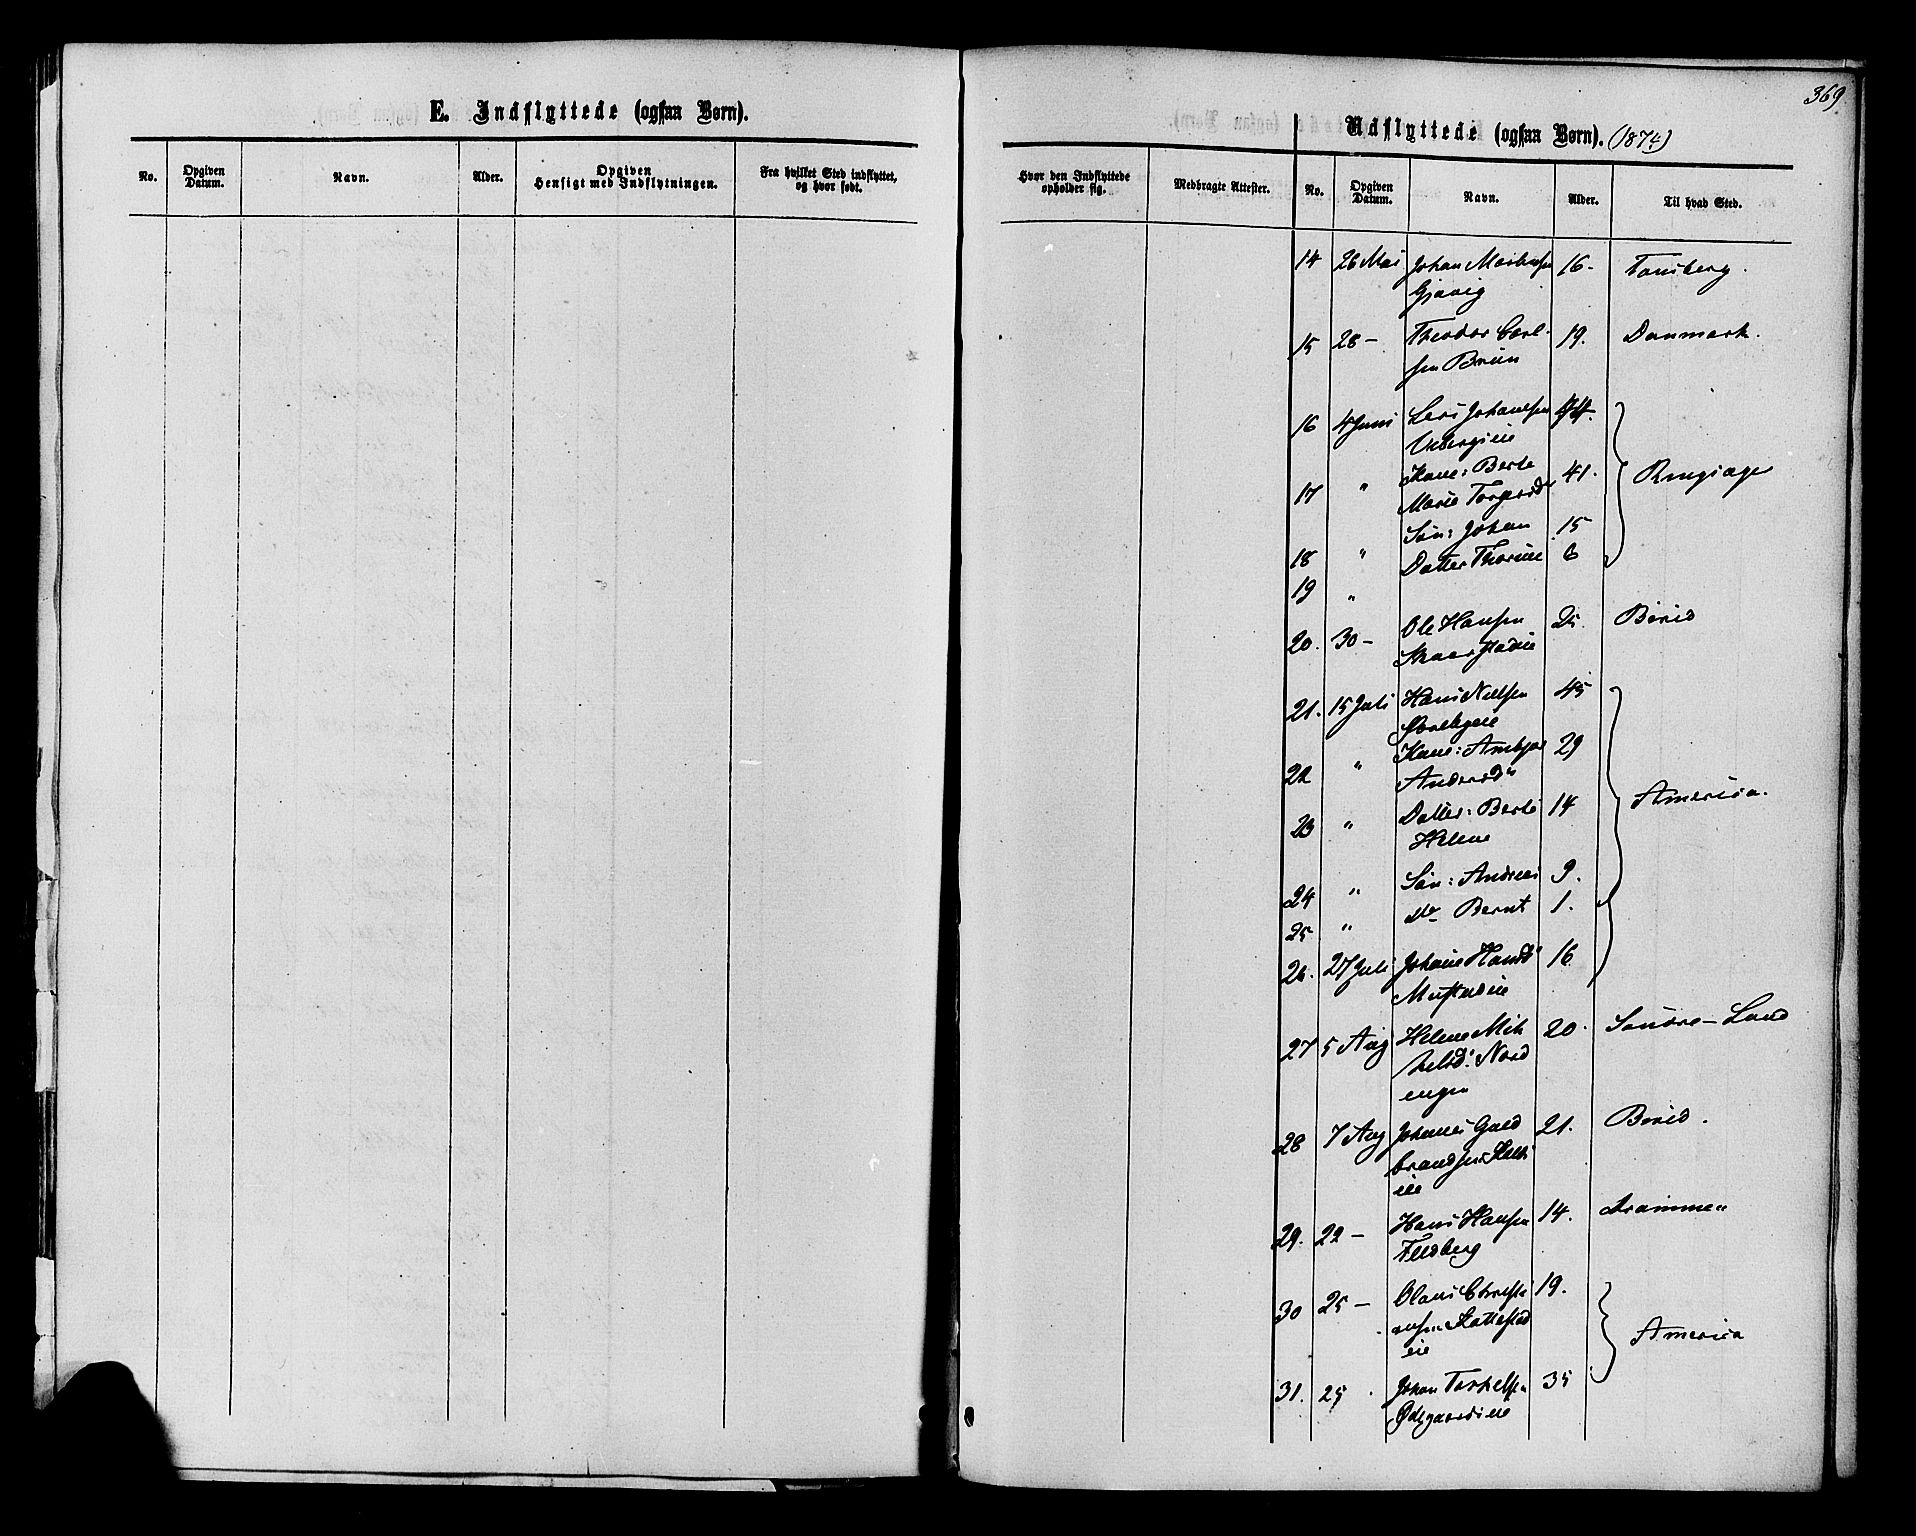 E. Indflyttede (ogsaa Børn).
No.
Opgiven Datum.
Navn.
Alder.
Opgiven Hensigt med Indflytningen.
Fra hvilket Sted indflyttet, og hvor født.
369
Udflyttede (ogsaa Børn). (1874)
Hvor den Indflyttede opholder sig.
Medbragte Attester.
No.
Opgiven Datum.
Navn.
Alder.
Til hvad Sted.
14 26 Mai Johan 16. Tønsberg.
Gjøvig
15 28 – Theodor Carl- 19. Danmark.
sen Bruun
16 4 Juni Lars Johanesen 44.
17 " Kone: Berte 41. Ringsager
Marie
18 " Søn: Johan 15
19 " Datter Thorine 6
20. 30 – Ole Hansen 25. Birid
21. 15 Juli Hans Nilsen 45
22 " Kone: 29
Andersd"
23 " Datter: Berte 14 America.
Helene
24 " Søn: Andreas 9.
25 " do Bernt 1.
26. 27 Juli Johane Hansd" 16
Mustadeie
27 5 Aug Helene Mik 20. Søndre-Land
kelsd. Nord
engen
28 7 Aug Johanes Guld 21. Birid.
brandsen
eie
29. 22 – Hans Hansen 14. Drammen
30 25 – Olaus Christi 19.
ansen Kattestad
eie America
31. 25 Johan Torkelsen 35
Ødegaardseie